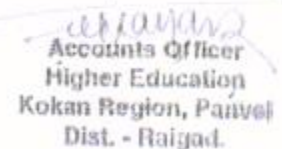 Accounts Officer
Higher Education
Kokan Region, Panvel
Dist. - Raigad.